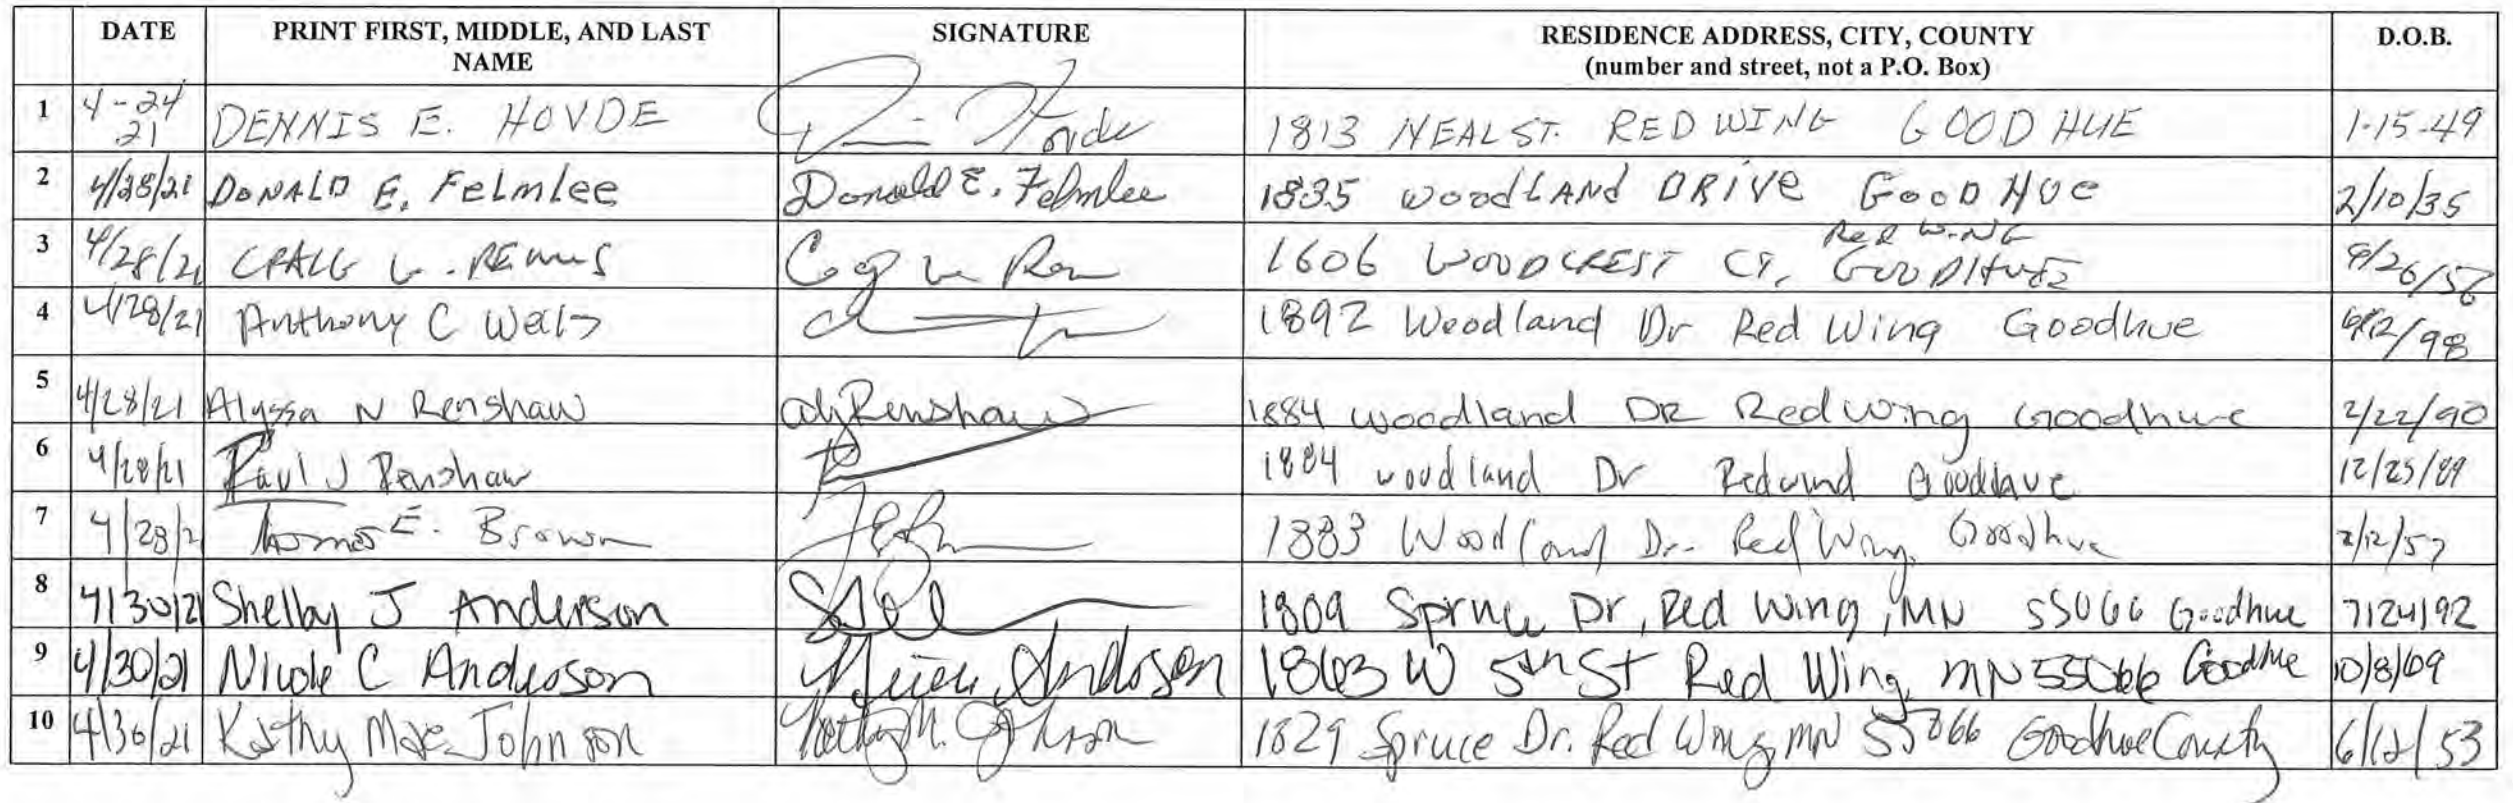 DATE PRINT FIRST, MIDDLE, AND LAST NAME SIGNATURE RESIDENCE ADDRESS, CITY, COUNTY (number and street, not a P.O. Box) D.O.B.
1 4-24 21 DENNIS E. HOVDE Hovde 1813 NEAL ST. RED WING GOODHUE 1-15-49
2 4/28/21 DONALD E. FeLmLee Donald E. Felmlee 1835 WoodLANd DRIVe GooDHUe 2/10/35
3 4/28/21 CRAIG REMUS 1606 WOODCREST CT, Red WING GOODHUE
4 4/28/21 Anthony C 1892 Woodland Dr Red Wing Goodhue
5 4/28/21 Alyssa N Renshaw Renshaw 1884 Woodland DR Red Wing Goodhue 2/22/90
6 4/28/21 Paul J Renshaw 1884 woodland Dr Goodhue 12/25/89
7 4/28/2 Thomas E. Brown 1883 Woodland Dr. Red Wing, Goodhue 2/12/57
8 4/30/21 Shelby J Anderson 1809 Spruce Dr, Red Wing, MN 55066 Goodhue 7/24/92
9 4/30/21 Nicole C Anderson Nicole Anderson 1863 W 5th St Red Wing, MN 55066 Goodhue 10/8/69
10 4/30/21 Kathy Mae Johnson Kathy M. Johnson 1829 Spruce Dr. Red Wing, MN 55066 Goodhue County 6/12/53